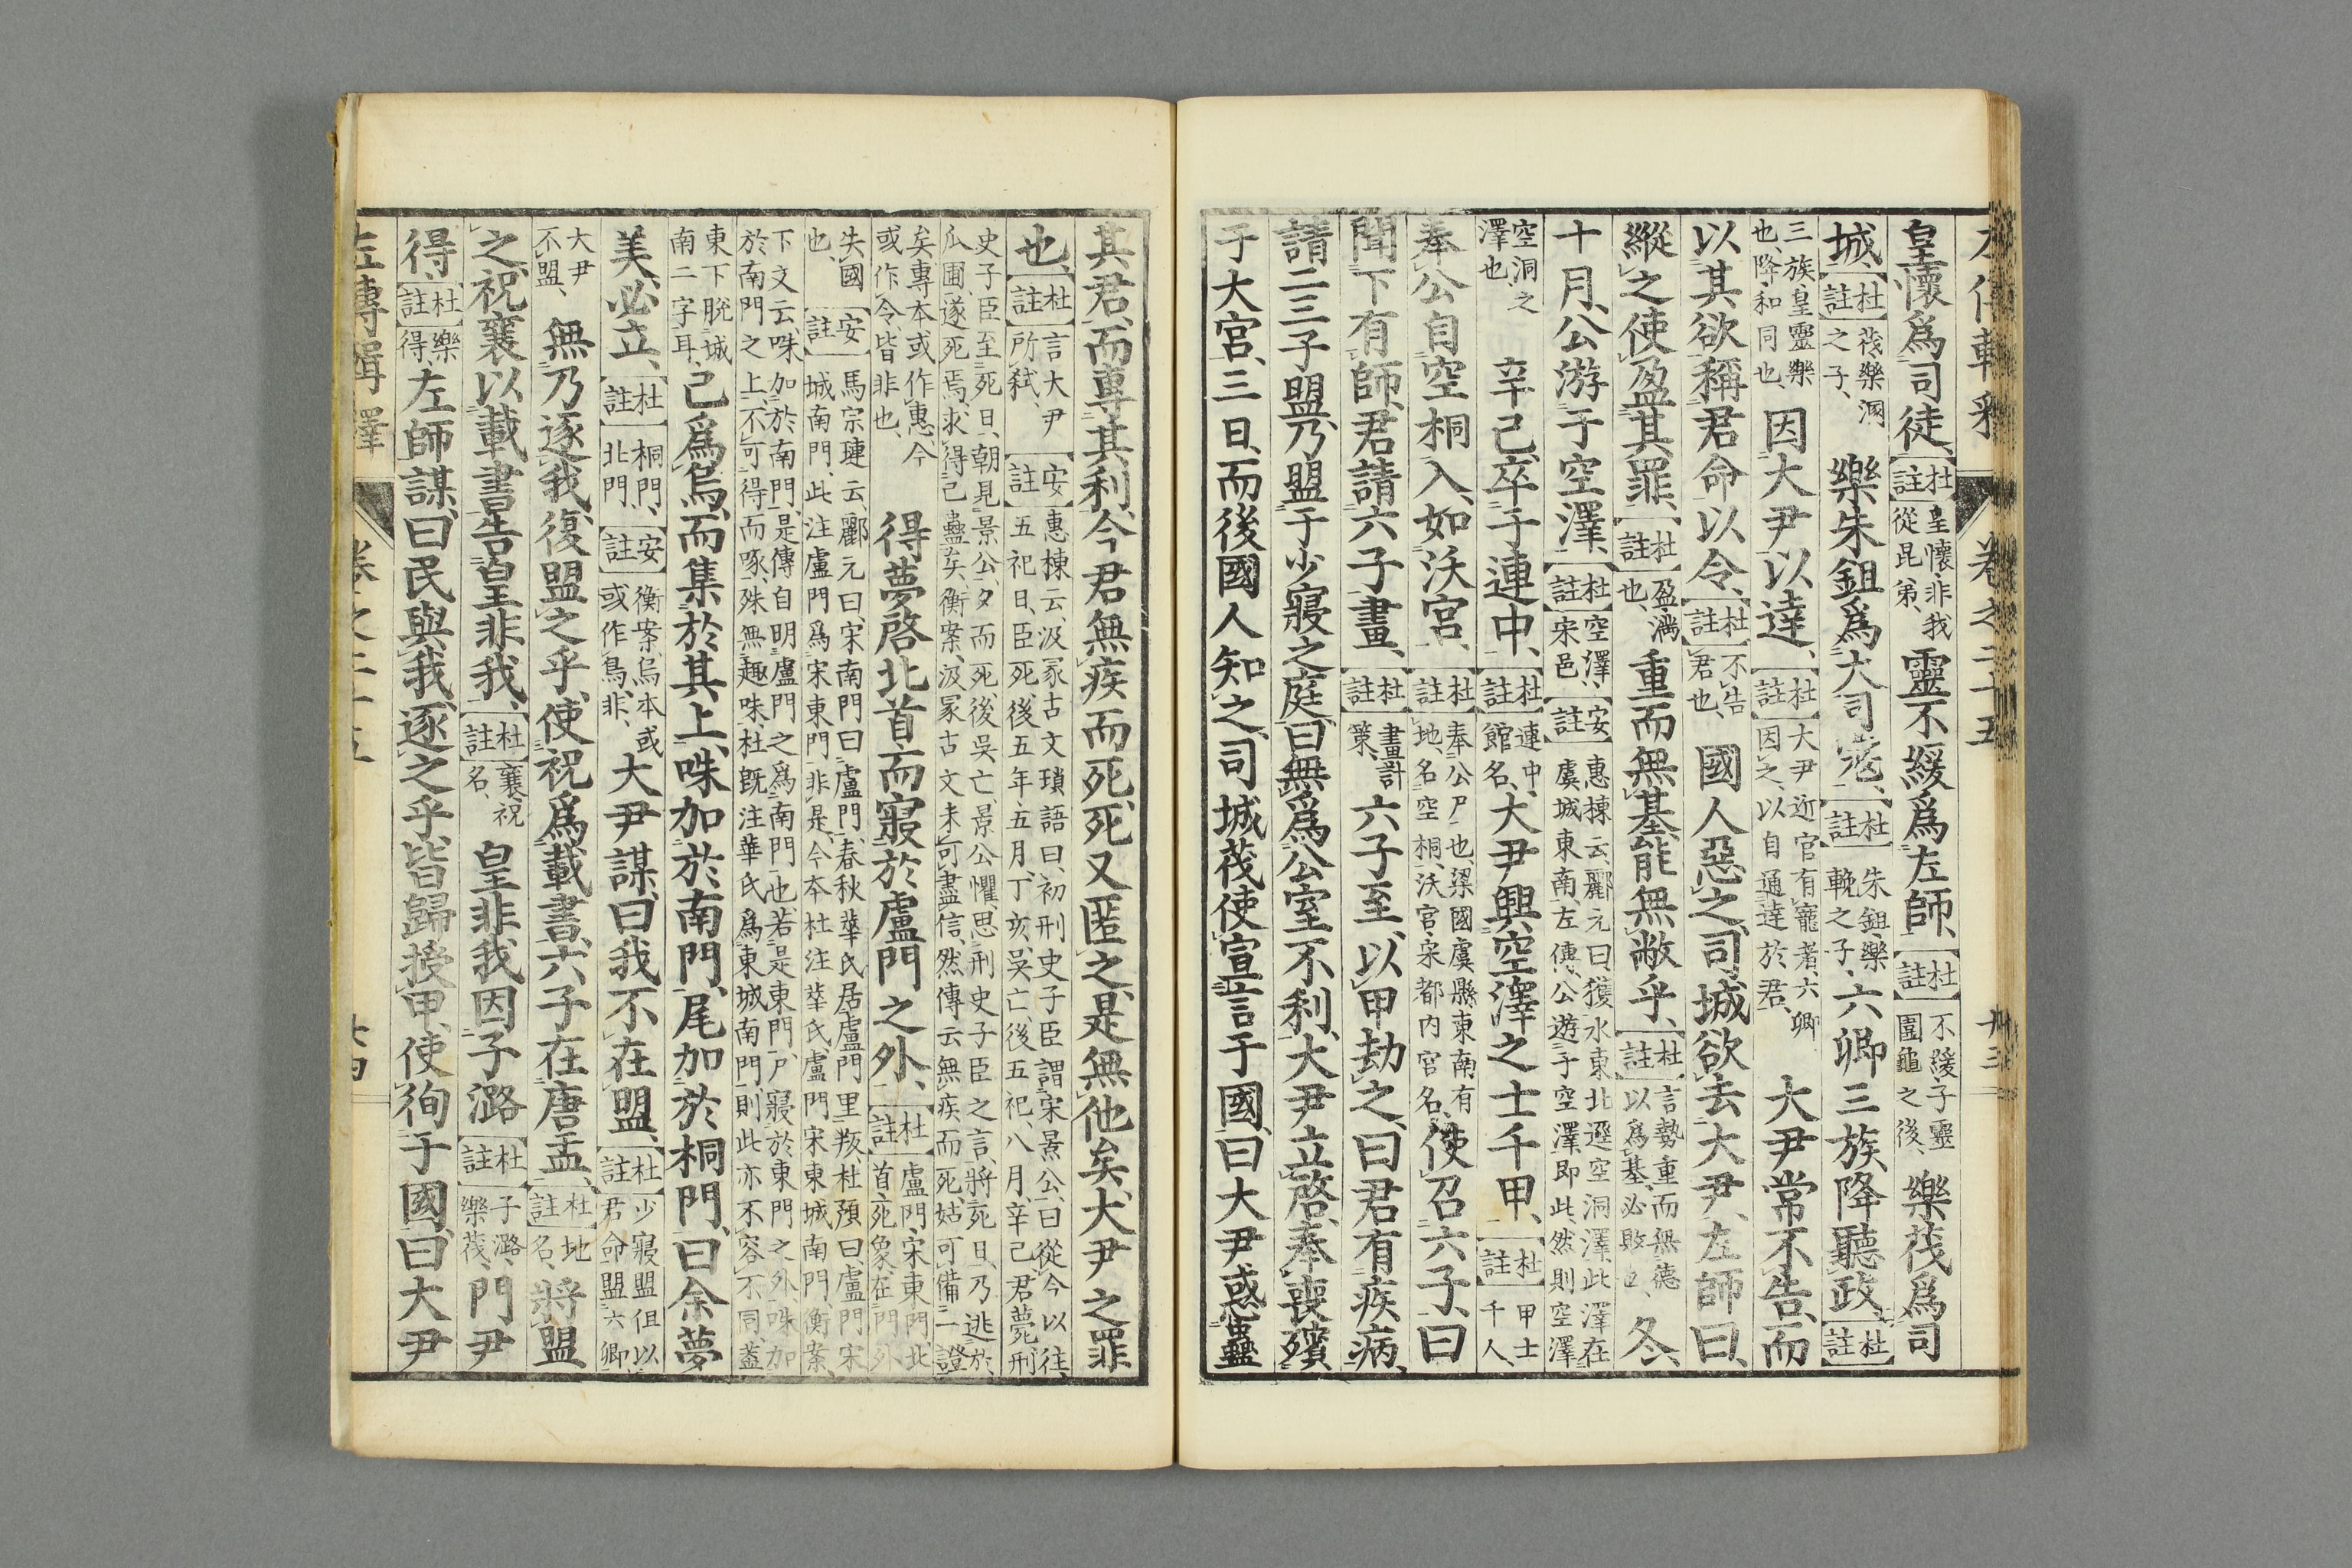 皇懷爲司徒、【杜註】皇懷、非我從昆弟、靈不緩爲左師、【杜註】不緩、子靈圍龜之後、樂茷爲司
城、【杜註】茷、樂溷之子、樂朱鉏爲大司寇、【杜註】朱鉏、樂輓之子、六卿三族降聽政、【杜註】
三族、皇靈樂也、降、和同也、因大尹以達、【杜註】大尹近官有寵者、六卿因之、以自通達於君、大尹常不告、而
以其欲稱君命以令、【杜註】不告君也、國人惡之、司城欲去大尹、左師曰、
縱之、使盈其罪、【杜註】盈、滿也、重而無基、能無敝乎、【杜註】言勢重而無德以爲基、必敗也、冬、
十月、公游于空澤、【杜註】空澤、宋邑、【安註】惠棟云、酈元曰、獲水東北逕空洞澤、此澤在虞城東南、左傳、公遊于空澤、即此、然則空澤
空洞之澤也、辛已、卒于連中、【杜註】連中、館名、大尹興空澤之士千甲、【杜註】甲士千人、
奉公自空桐入、如沃宮、【杜註】奉公尸也、梁國虞縣東南有地、名空桐、沃宮、宋都內宮名、使召六子、曰
聞下有師、君請六子畫、【杜註】畫、計策、六子至、以甲劫之、曰君有疾病、
請二三子盟、乃盟于少寢之庭、曰無爲公室不利、大尹立啓、奉喪殯
于大宮、三日、而後國人知之、司城茷使宣言于國、曰大尹惑蠱
其君、而專其利、今君無疾而死、死又匿之、是無他矣、大尹之罪
也、【杜註】言大尹所弑、【安註】惠棟云、汲冢古文瑣語曰、初刑史子臣謂宋景公、曰從今以往、五祀日、臣死、後五年、五月、丁亥、吳亡、後五祀、八月、辛已、君薨、刑
史子臣至死日、朝見景公、夕而死、後吳亡、景公懼、思刑史子臣之言、將死日、乃逃於瓜圃、遂死焉、求得已蠱矣、衡案、汲冢古文未可盡信、然傳云無疾而死、姑可備一證
矣、專本或作惠、今或作令、皆非也、得夢啓北首、而寢於盧門之外、【杜註】盧門、宋東門、北首、死象、在門外
失國也、【安註】馬宗璉云、酈元曰、宋南門曰盧門、春秋華氏居盧門里叛、杜預曰、盧門、宋城南門、此注盧門爲宋東門、非是、今本杜注、華氏、盧門宋東城南門、衡案、
下文云、咮加於南門、是傳自明盧門之爲南門也、若是東門、尸寢於東門之外、咮加於南門之上、不可得而啄、殊無趣味、杜旣注華氏爲東城南門、則此亦不容不同、蓋
東下脫城南二字耳、己爲烏、而集於其上、咮加於南門、尾加於桐門、曰余夢
美、必立、【杜註】桐門、北門、【安註】衡案、烏本或或作鳥、非、大尹謀曰、我不在盟、【杜註】少寢盟、但以君命盟六卿、
大尹不盟、無乃逐我、復盟之乎、使祝爲載書、六子在唐盂、【杜註】地名、將盟
之、祝襄以載書告皇非我、【杜註】襄、祝名、皇非我因子潞、【杜註】子潞、樂茷、門尹
得、【杜註】樂得、左師謀、曰民與我、逐之乎、皆歸授甲、使徇于國、曰大尹
左傳輯釋 卷之二十五